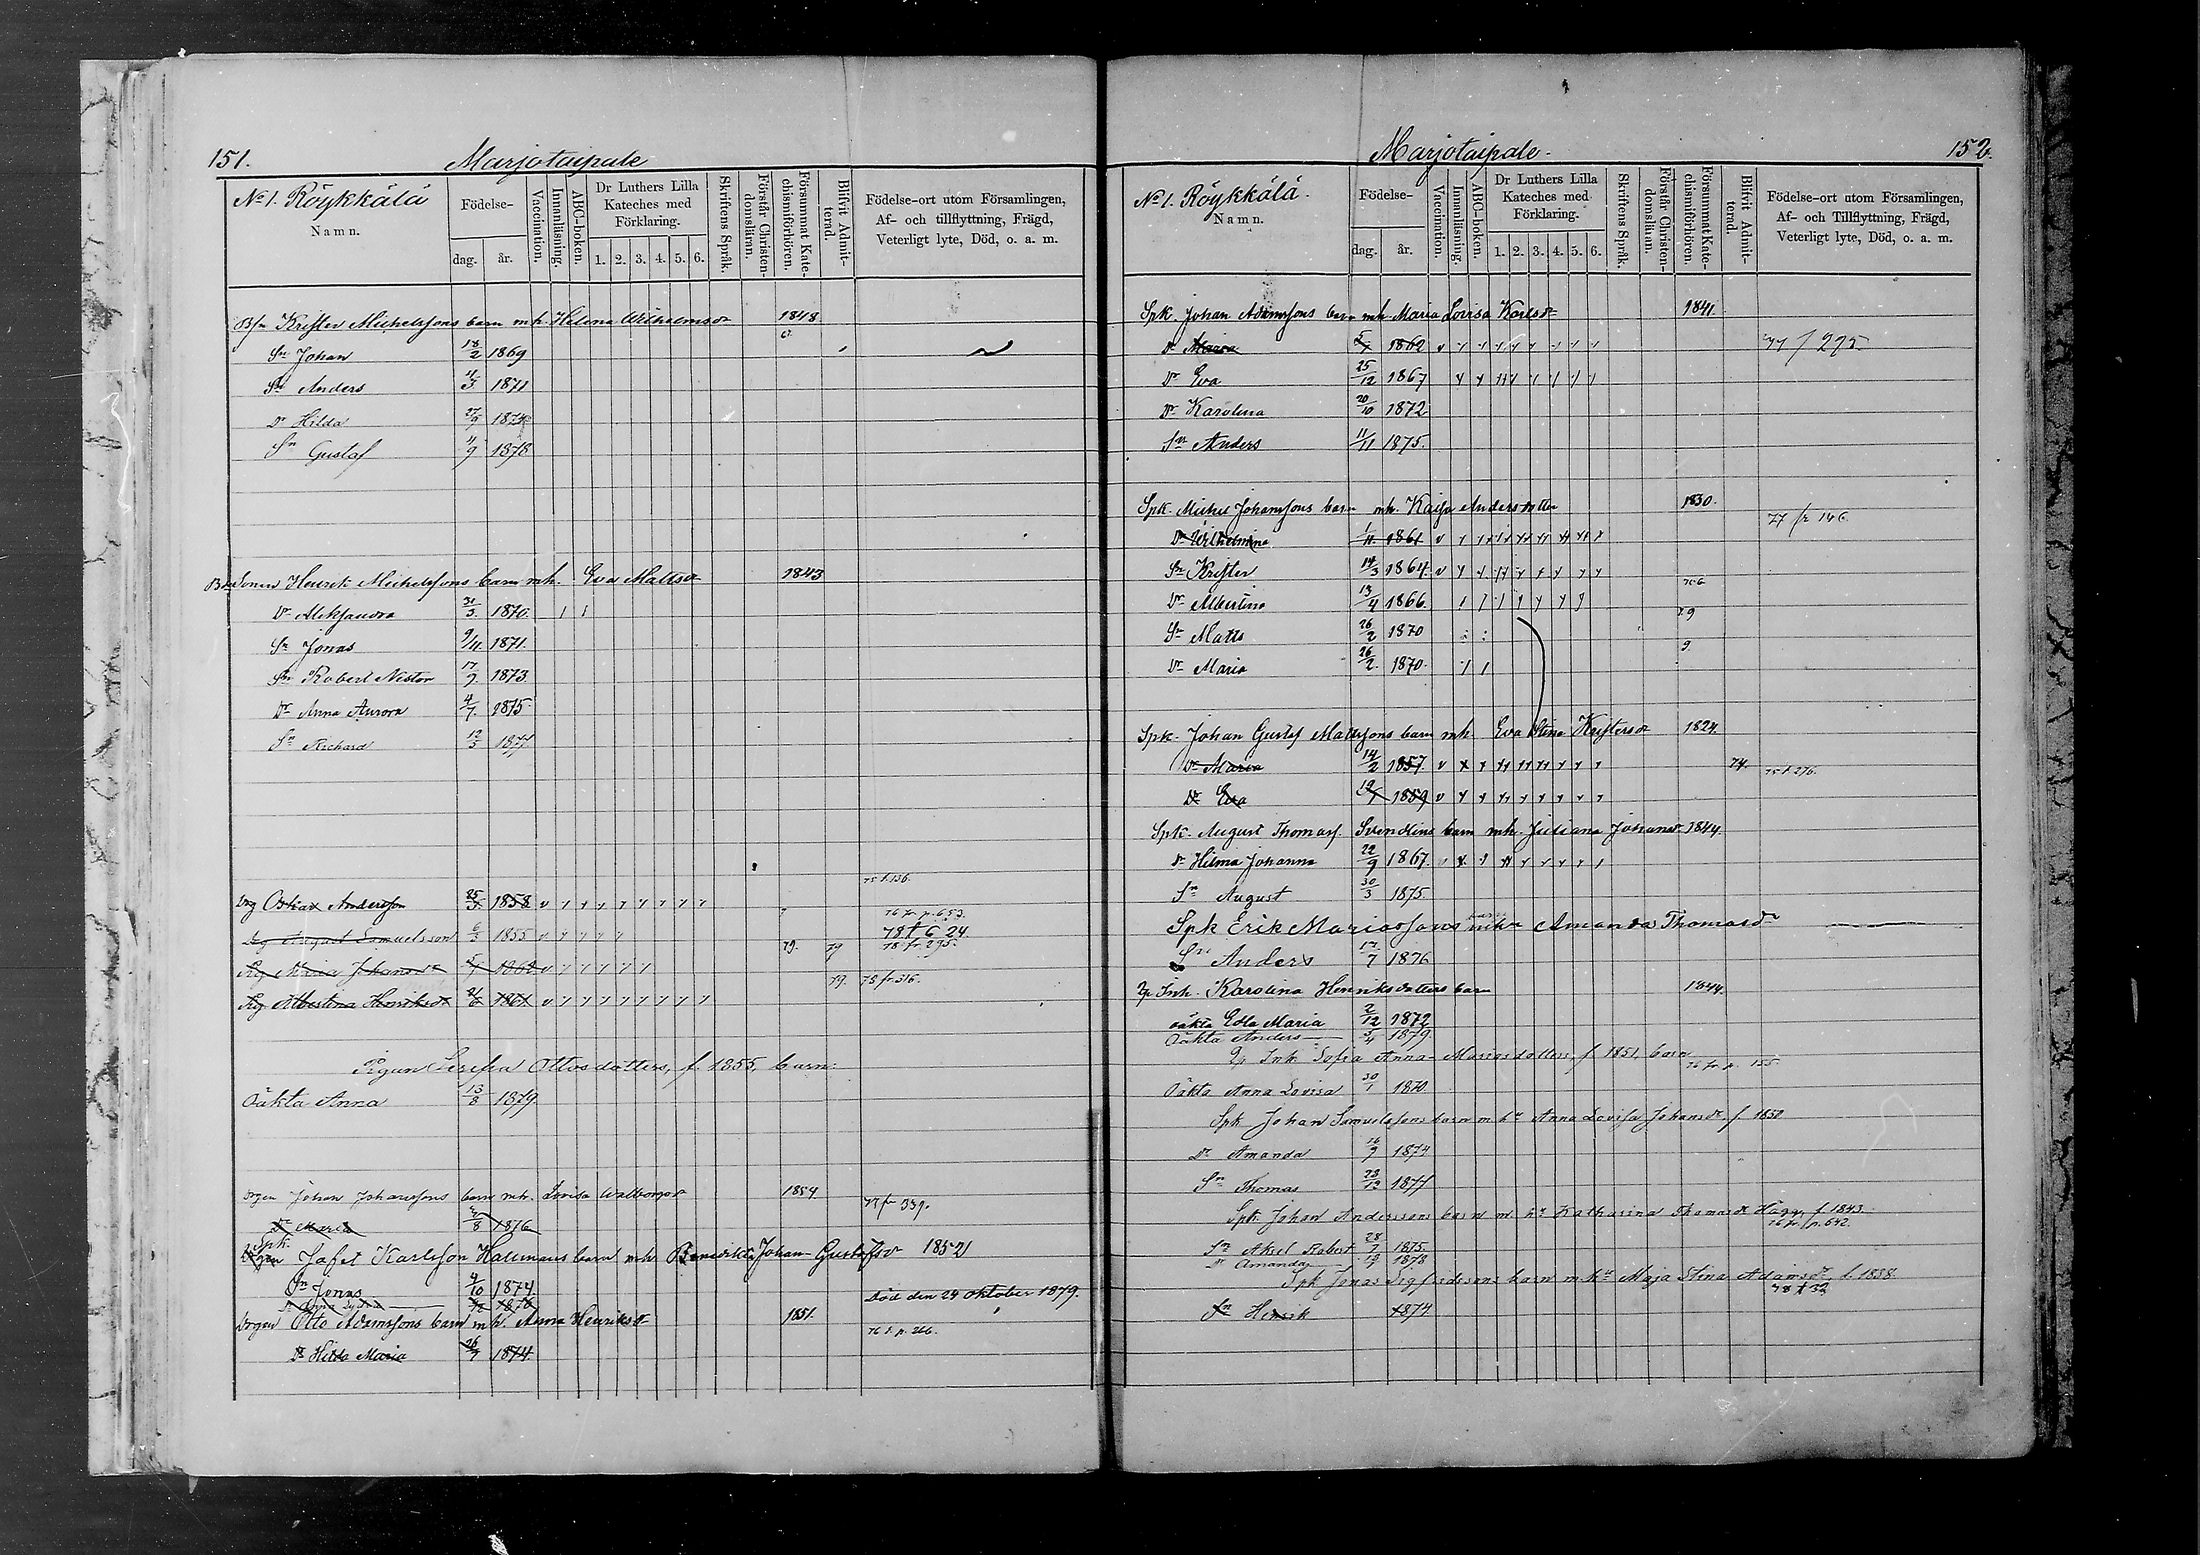 151. Marjotaipale
No 1. Röykkälä
Namn.
Födelse-
dag. år.
Vaccination.
Innanläsning.
ABC-boken.
Dr Luthers Lilla Kateches med Förklaring.
1. 2. 3. 4. 5. 6.
Skriftens Språk.
Förstår Christen-domsläran.
Försummat Kate-chismiförhören.
Blifvit Admit-terad.
Födelse-ort utom Församlingen,
Af- och tillflyttning, Frägd,
Veterligt lyte, Död, o. a. m.
Krister Michelssons barn mh. Helena Wilhelmsdr 1848
Sn Johan 18/2 1869
Sn Anders 11/3 1871
Dr Hilda 27/9 1874
Sn Gustaf 11/9 1878
Henrik Michelssons barn mh. Eva Mattsdr 1843
Dr Aleksandra 31/3 1870
Sn Jonas 9/11 1871
Sn Robert Nestor 17/9 1873
Dr Anna Aurora 4/7 1875
Sn Richard 12/3 1877
75 f. 136.
Drg Oskar Andersson 25/3 1858
76 fr. p. 653.
Drg August Samuelsson 6/3 1855 78 f 6 24
79. 79 78 fr. 295.
Pig Maria Johansdr 1862
79. 78 fr. 316.
Pig Albertina Henriksdr 21/6 1861
Pigan Serefia Ottosdotters, f. 1855, barn:
Oäkta Anna 13/8 1879.
Drgen Johan Johanssons barn mh. Lovisa Walborgsdr 1854
77 fr 339.
Dr Maria 1876
Spk.
Drgen Jafet Karlsson Hallmans barn mh Benedikta Johan-Gustafsdr 1852
Sn Jonas 4/10 1874
Död den 24 oktober 1879.
Drgen Otto Adamssons barn mh. Anna Henriksdr 1851.
76 f. p. 266.
Dr Hilda Maria 26/7 1874
Marjotaipale. 152.
No 1. Röykkälä.
Namn.
Födelse-
dag. år.
Vaccination.
Innanläsning.
ABC-boken.
Dr Luthers Lilla Kateches med Förklaring.
1. 2. 3. 4. 5. 6.
Skriftens Språk.
Förstår Christen-domsläran.
Försummat Kate-chismiförhören.
Blifvit Admit-terad.
Födelse-ort utom Församlingen,
Af- och Tillflyttning, Frägd,
Veterligt lyte, Död, o. a. m.
Spk. Johan Adamssons barn mh. Maria Lovisa Karlsdr 1841.
Dr Maria 5/7 1862 77 f 295.
Dr Eva 25/12 1867
Dr Karolina 20/10 1872
Sn Anders 11/11 1875.
Spk. Michel Johanssons barn mh. Kajsa Andersdotter 1830.
77 fr 146
Dr Wilhelmina 1/11 1861
Sn Krister 14/3 1864
Dr Albertina 13/4 1866
Sn Matts 26/2 1870
Dr Maria 26/2 1870
Spk. Johan Gustaf Mattssons barn mh. Eva Stina Kristersdr 1824
Dr Maria 14/2 1857 74. 75 f. 276.
Dr Eva 1859
Spk. August Thomass. Svendlins barn mh. Juliana Johansdr 1844
Dr Hilma Johanna 22/9 1867
Sn August 30/3 1875
Spk Erik Mariassons barn mhu Amanda Thomasdr
Sn Anders 17/7 1876
Inh. Karolina Henriksdotters barn 1844.
oäkta Edla Maria 2/12 1872
Oäkta Anders 3/4 1879.
Inh Sofia Anna-Mariasdotters, f. 1851, barn
76 fr. p. 155.
Oäkta Anna Lovisa 30/1 1870
Spk Johan Samuelssons barn m hu Anna Lovisa Johansdr, f. 1850
Dr Amanda 16/9 1874
Sn Thomas 23/12 1877
Spk Johan Anderssons barn m. hu Katharina Thomasdr Hägg, f. 1843.
76 fr. p. 642.
Sn Aksel Robert 28/7 1875.
Dr Amanda 1878
Spk Jonas Sigfridssons barn m hu Maja Stina Adamsdr, f. 1838.
78 f 32
Sn Henrik 1874